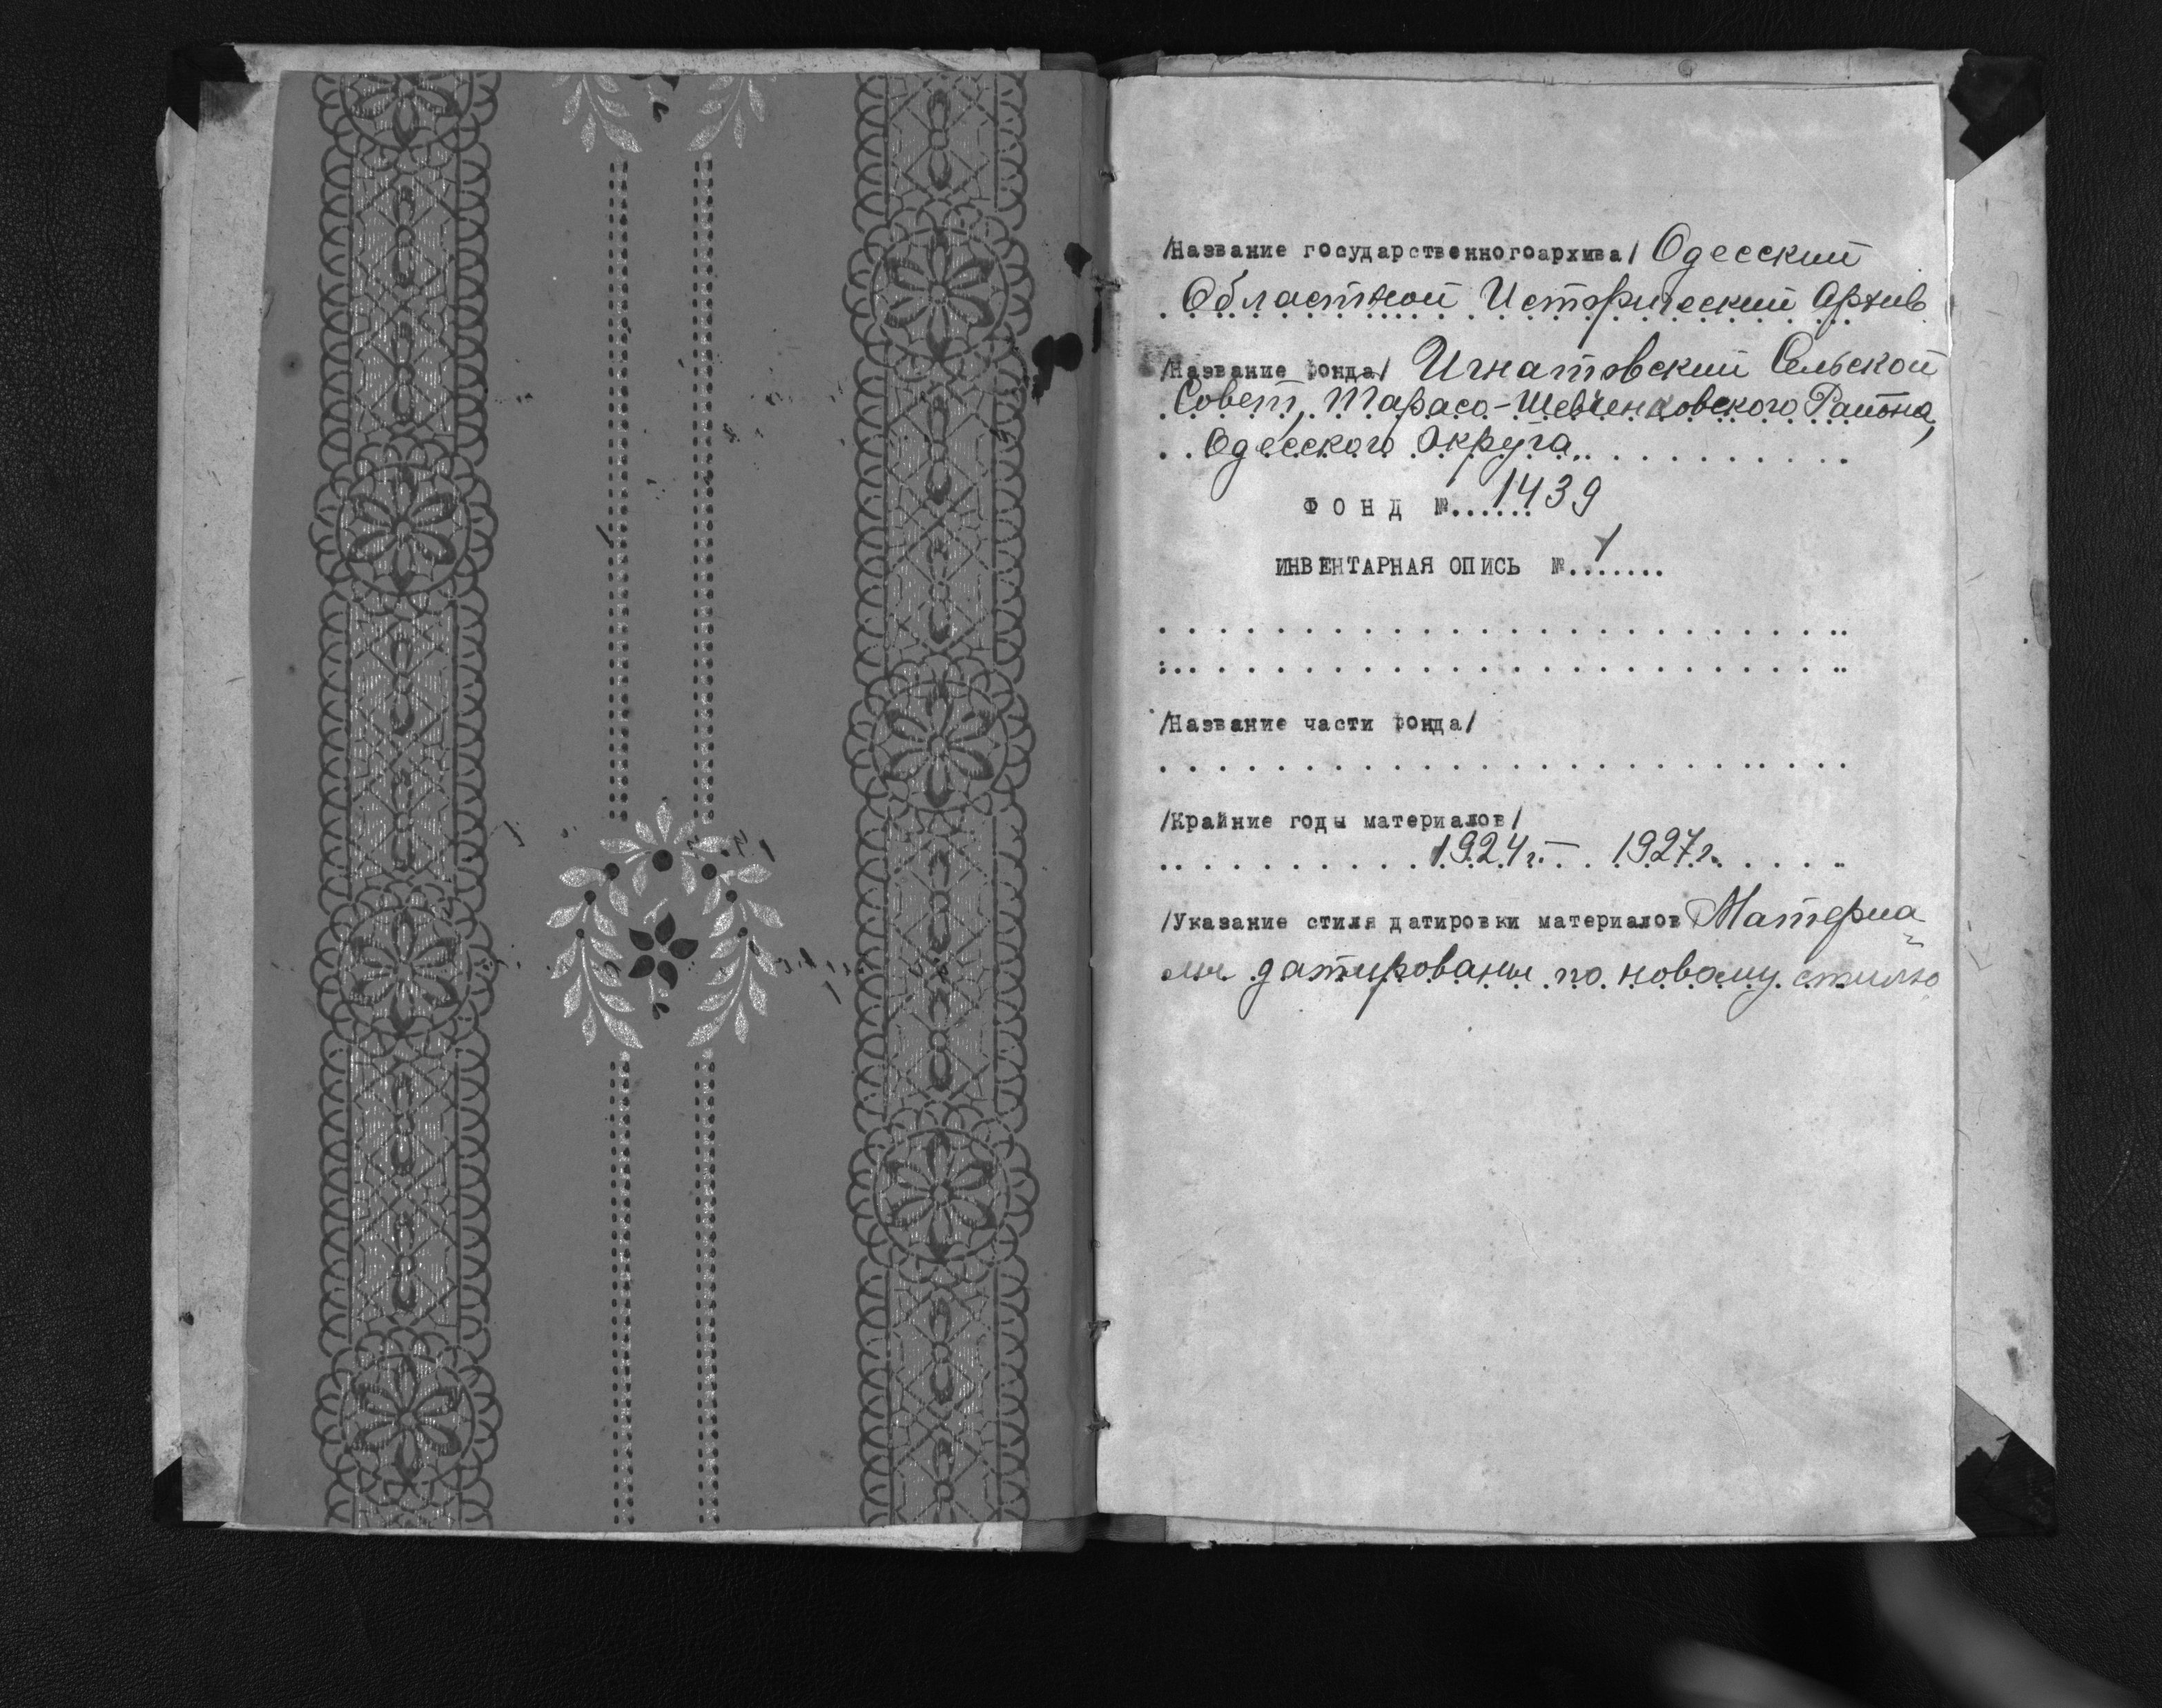 /Название государственногоархива/ Одесский
Областной Исторический Архив
/Название фонда/ Игнатовский Сельской
Совет, Тарасо-Шевченковского Района,
Одесского Округа
ФОНД №......1439
ИНВЕНТАРНАЯ ОПИСЬ №.1......
/Название части фонда/
/Крайние годы материалов/
1924г. – 1927г.
/Указание стиля датировки материалов Материа-
лы датированы по новому стилю